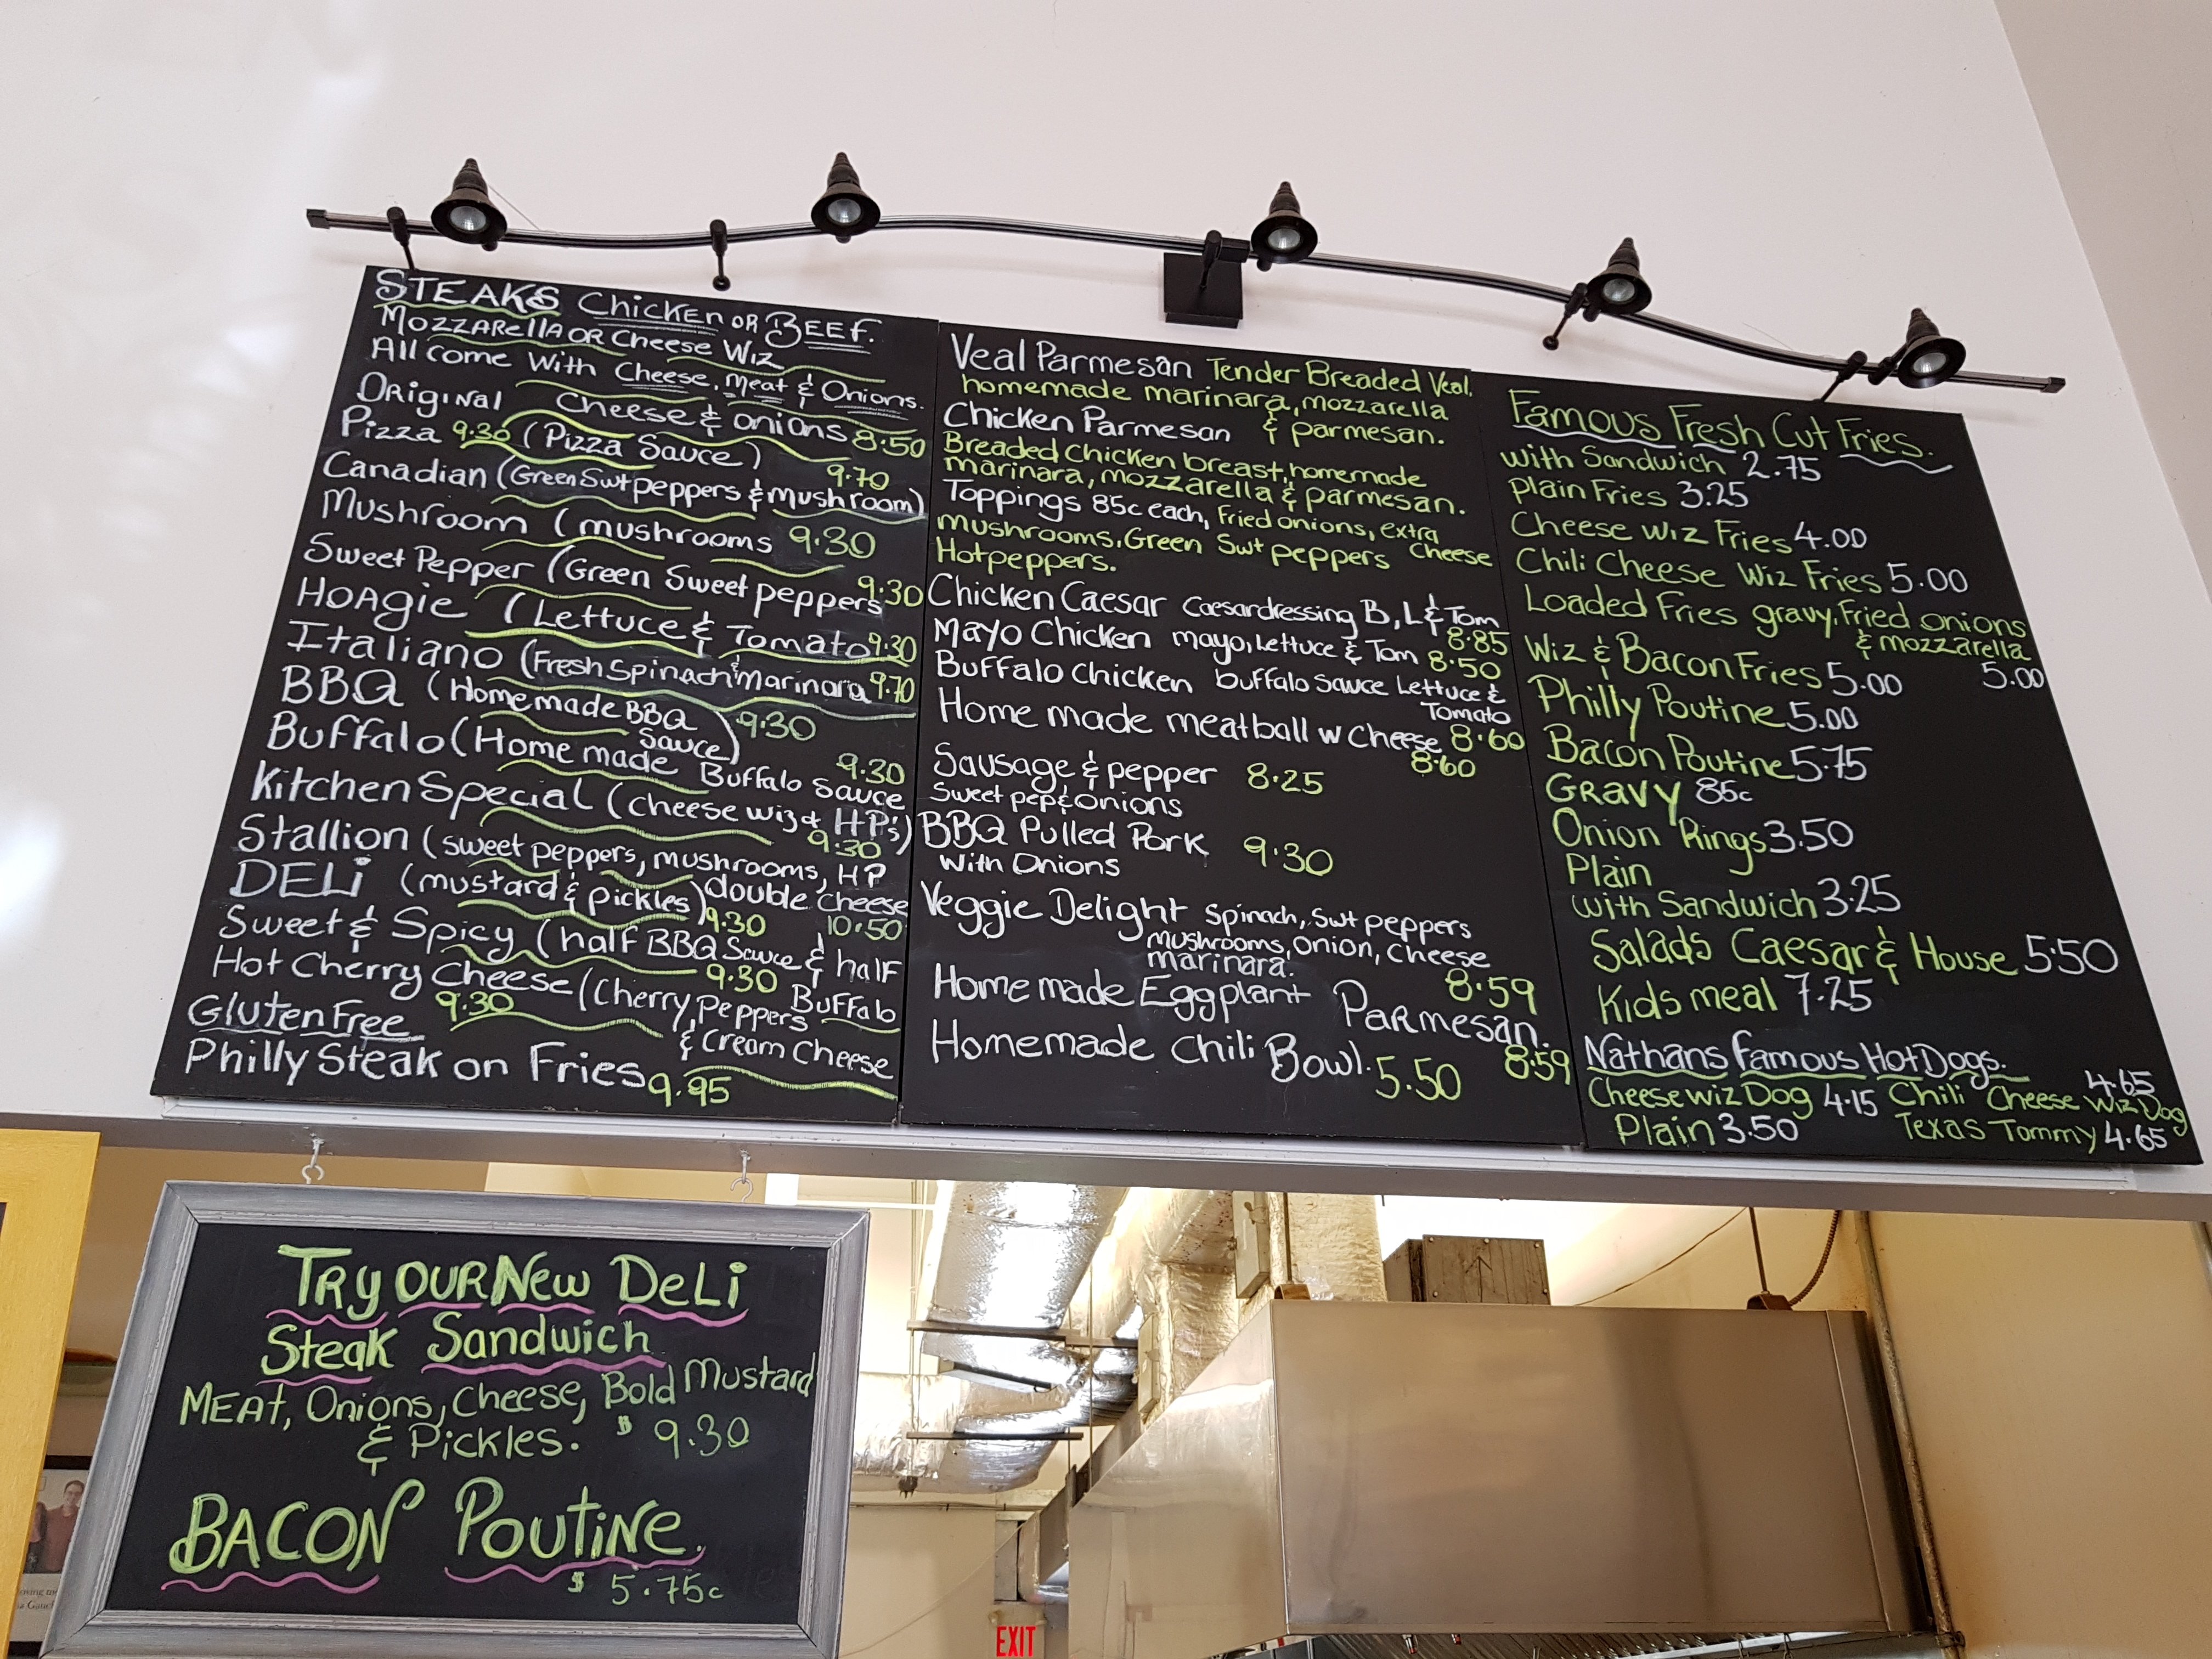 STEAKS Chicken OR BEEF.
MOZZARellA OR Cheese Wiz
All come With Cheese, Meat & Onions.
Original Cheese & onions 8.50
Pizza 9.30 (Pizza Sauce)
9.70
Canadian (Green Swt peppers & Mushroom)
Mushroom (mushrooms 9.30
Sweet Pepper (Green Sweet peppers 9.30
HOAgie (Lettuce & Tomato 9.30
Italiano (Fresh Spinach & Marinara 9.70
BBQ (Homemade BBQ Sauce) 9.30
Buffalo (Home made Buffalo Sauce 9.30
Kitchen Special (cheese wiz & HP's) 9.30
Stallion (sweet peppers, mushrooms, HP
double cheese 10.50
DELi (mustard & pickles) 9.30
Sweet & Spicy (half BBQ Sauce & half Buffalo 9.30
Hot Cherry Cheese (Cherry Peppers & Cream Cheese 9.30
Gluten Free
Philly Steak on Fries 9.95
Veal Parmesan Tender Breaded Veal,
homemade marinara, mozzarella
& parmesan.
Chicken Parmesan
Breaded Chicken breast, homemade
marinara, mozzarella & parmesan.
Toppings 85c each, Fried onions, extra Cheese
mushrooms, Green Swt peppers
Hot peppers.
Chicken Caesar Caesar dressing B, L & Tom 8.85
Mayo Chicken mayo, Lettuce & Tom 8.50
Buffalo Chicken buffalo sauce Lettuce & Tomato 8.60
Home made meatball w Cheese 8.60
Sausage & pepper 8.25
Sweet pep & Onions
BBQ Pulled Pork 9.30
With Onions
Veggie Delight Spinach, Swt peppers
mushrooms, onion, Cheese
marinara. 8.59
Home made Eggplant Parmesan. 8.59
Homemade Chili Bowl. 5.50
Famous Fresh Cut Fries.
with Sandwich 2.75
Plain Fries 3.25
Cheese Wiz Fries 4.00
Chili Cheese Wiz Fries 5.00
Loaded Fries gravy, Fried onions
& mozzarella 5.00
Wiz & Bacon Fries 5.00
Philly Poutine 5.00
Bacon Poutine 5.75
GRAVY 85c
Onion Rings 3.50
Plain
with Sandwich 3.25
Salads Caesar & House 5.50
Kids meal 7.25
Nathans Famous Hot Dogs.
Cheese wiz Dog 4.15 Chili Cheese Wiz Dog 4.65
Plain 3.50 Texas Tommy 4.65
TRy OUR New DeLi
Steak Sandwich
MEAt, Onions, Cheese, Bold Mustard
& Pickles. $ 9.30
BACON PoutiNe.
$ 5.75c
EXIT